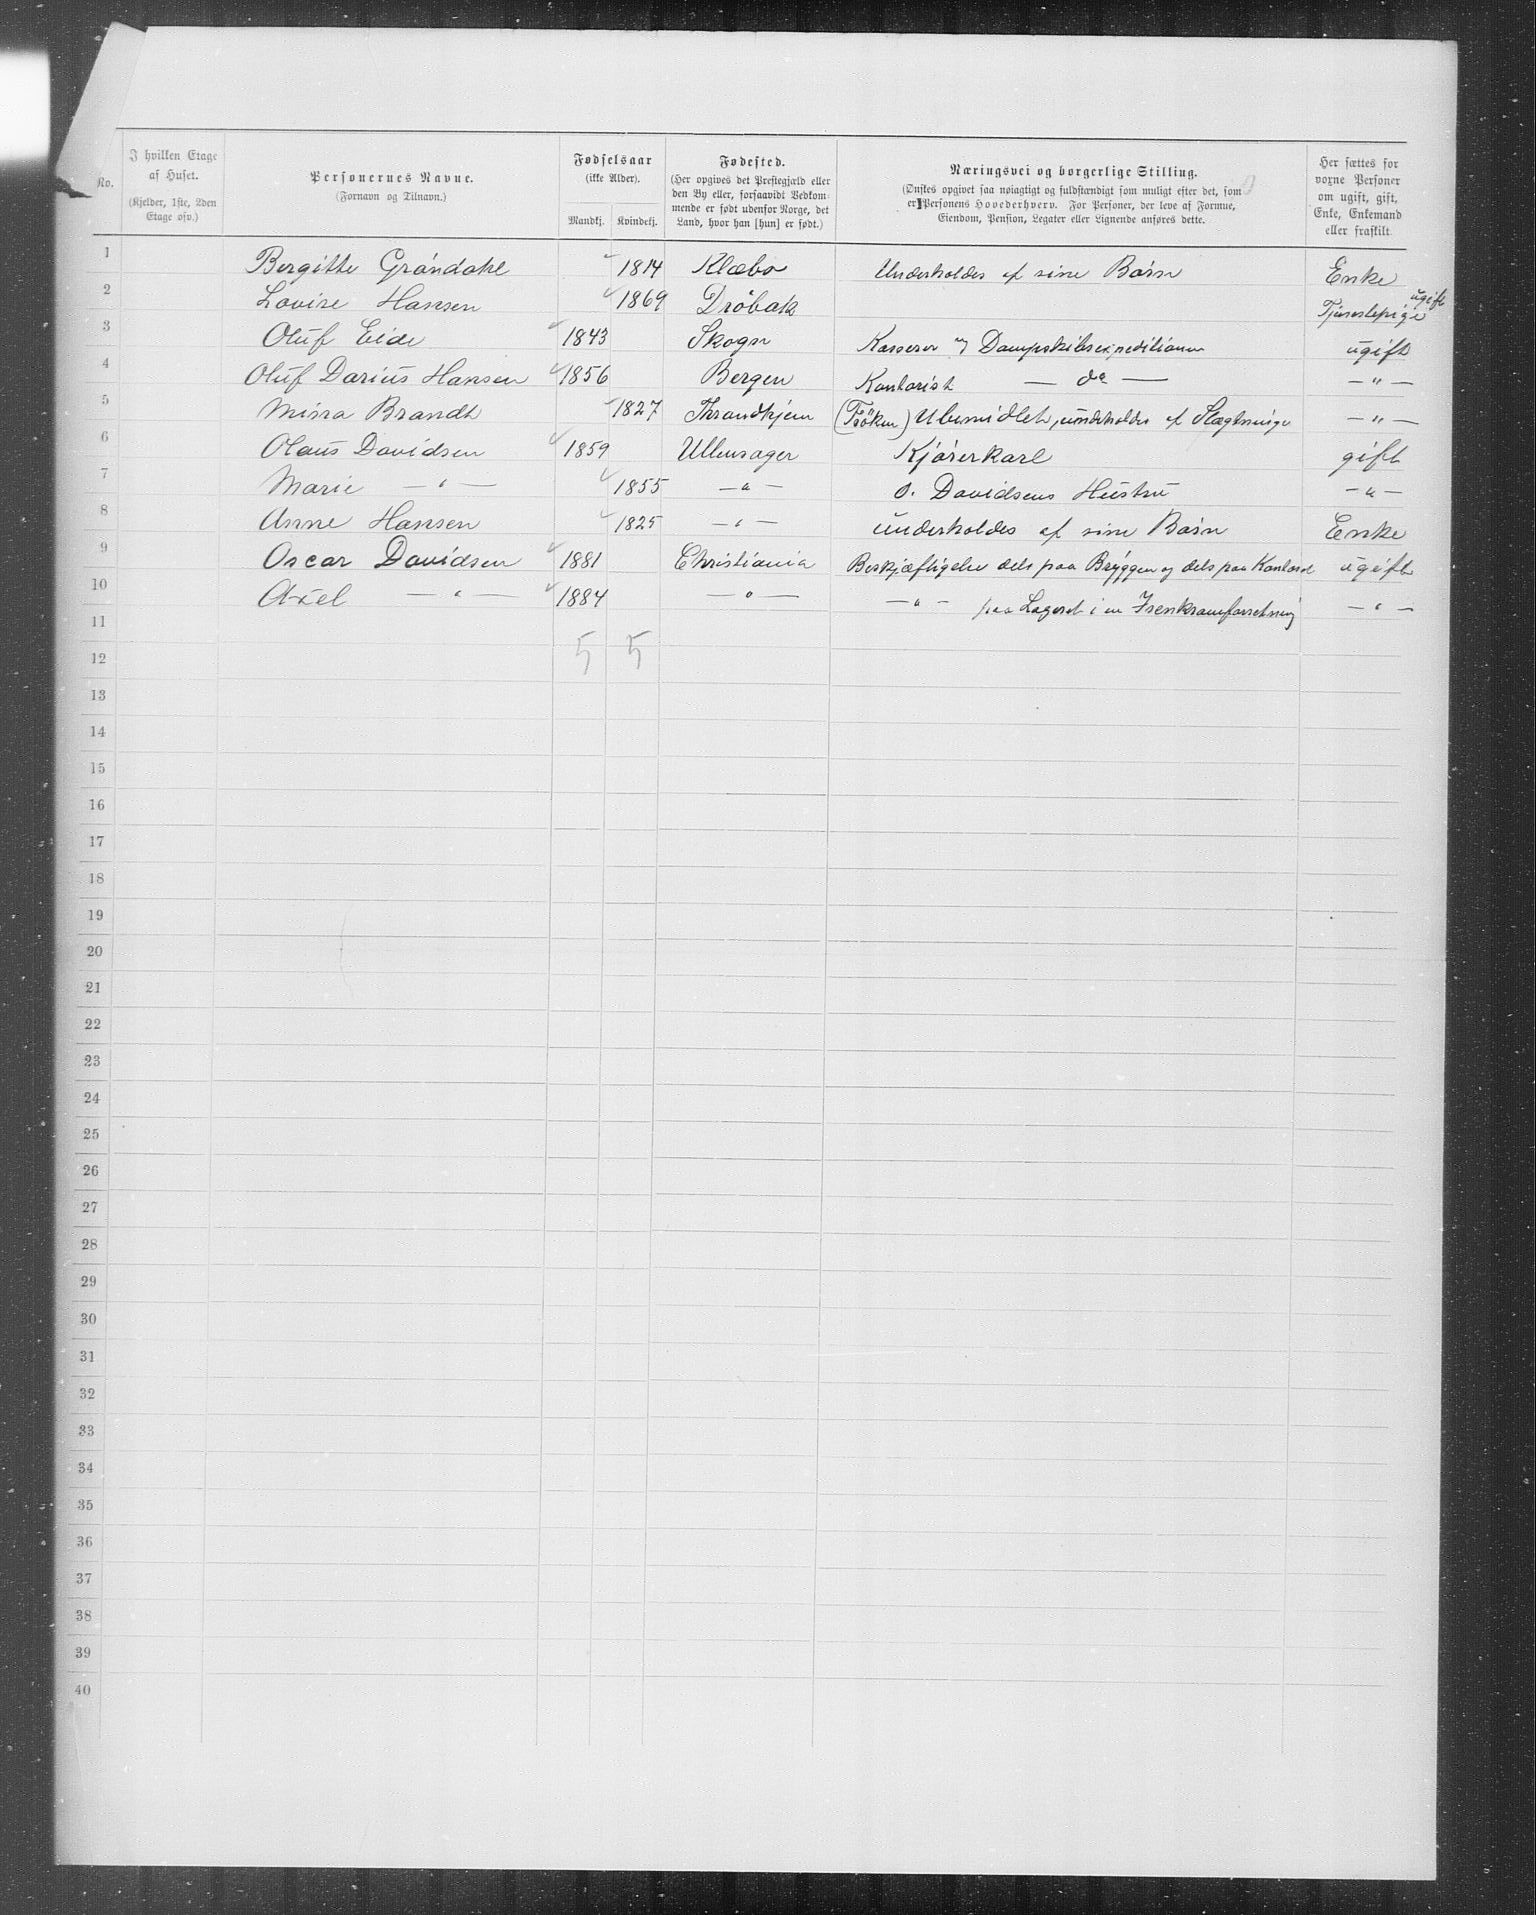 No.
I hvilken Etage af Huset.
(Kjelder, 1ste, 2den Etage osv.)
Personernes Navne.
(Fornavn og Tilnavn.)
Fødselsaar
(ikke Alder).
Mandkj. Kvindekj.
Fødested.
(Her opgives det Prestegjæld eller den By eller, forsaavidt Vedkommende er født udenfor Norge, det Land, hvor han [hun] er født.)
Næringsvei og borgerlige Stilling.
(Ønskes opgivet saa nøiagtigt og fuldstændigt som muligt efter det, som er Personens Hovederhverv. For Personer, der leve af Formue, Eiendom, Pension, Legater eller Lignende anføres dette.
Her sættes for voxne Personer om ugift, gift, Enke, Enkemand eller fraskilt.
1 Bergitte Gröndahl 1814 Klæbo Underholdes af sine Börn Enke
2 Lovise Hansen 1869 Dröbak Tjenestepige ugift
3 Oluf Eide 1843 Skogn Kasserer Dampskibsexpeditionen ugift
4 Oluf Darius Hansen 1856 Bergen Kontorist — do — — " —
5 Mina Brandt 1827 Throndhjem (Fröken) Ubemidlet, underholdes af Slægtninge — " —
6 Olaus Davidsen 1859 Ullensager Kjörerkarl gift
7 Marie — " — 1855 — " — O. Davidsens Hustru — " —
8 Anne Hansen 1825 — " — underholdes af sine Börn Enke
9 Oscar Davidsen 1881 Christiania Beskjæftigelse dels paa Bryggen og dels paa Kontoret ugift
10 Axel — " — 1884 — " — — " — paa Lageret i en Isenkramforretning — " —
11
5 5
12
13
14
15
16
17
18
19
20
21
22
23
24
25
26
27
28
29
30
31
32
33
34
35
36
37
38
39
40